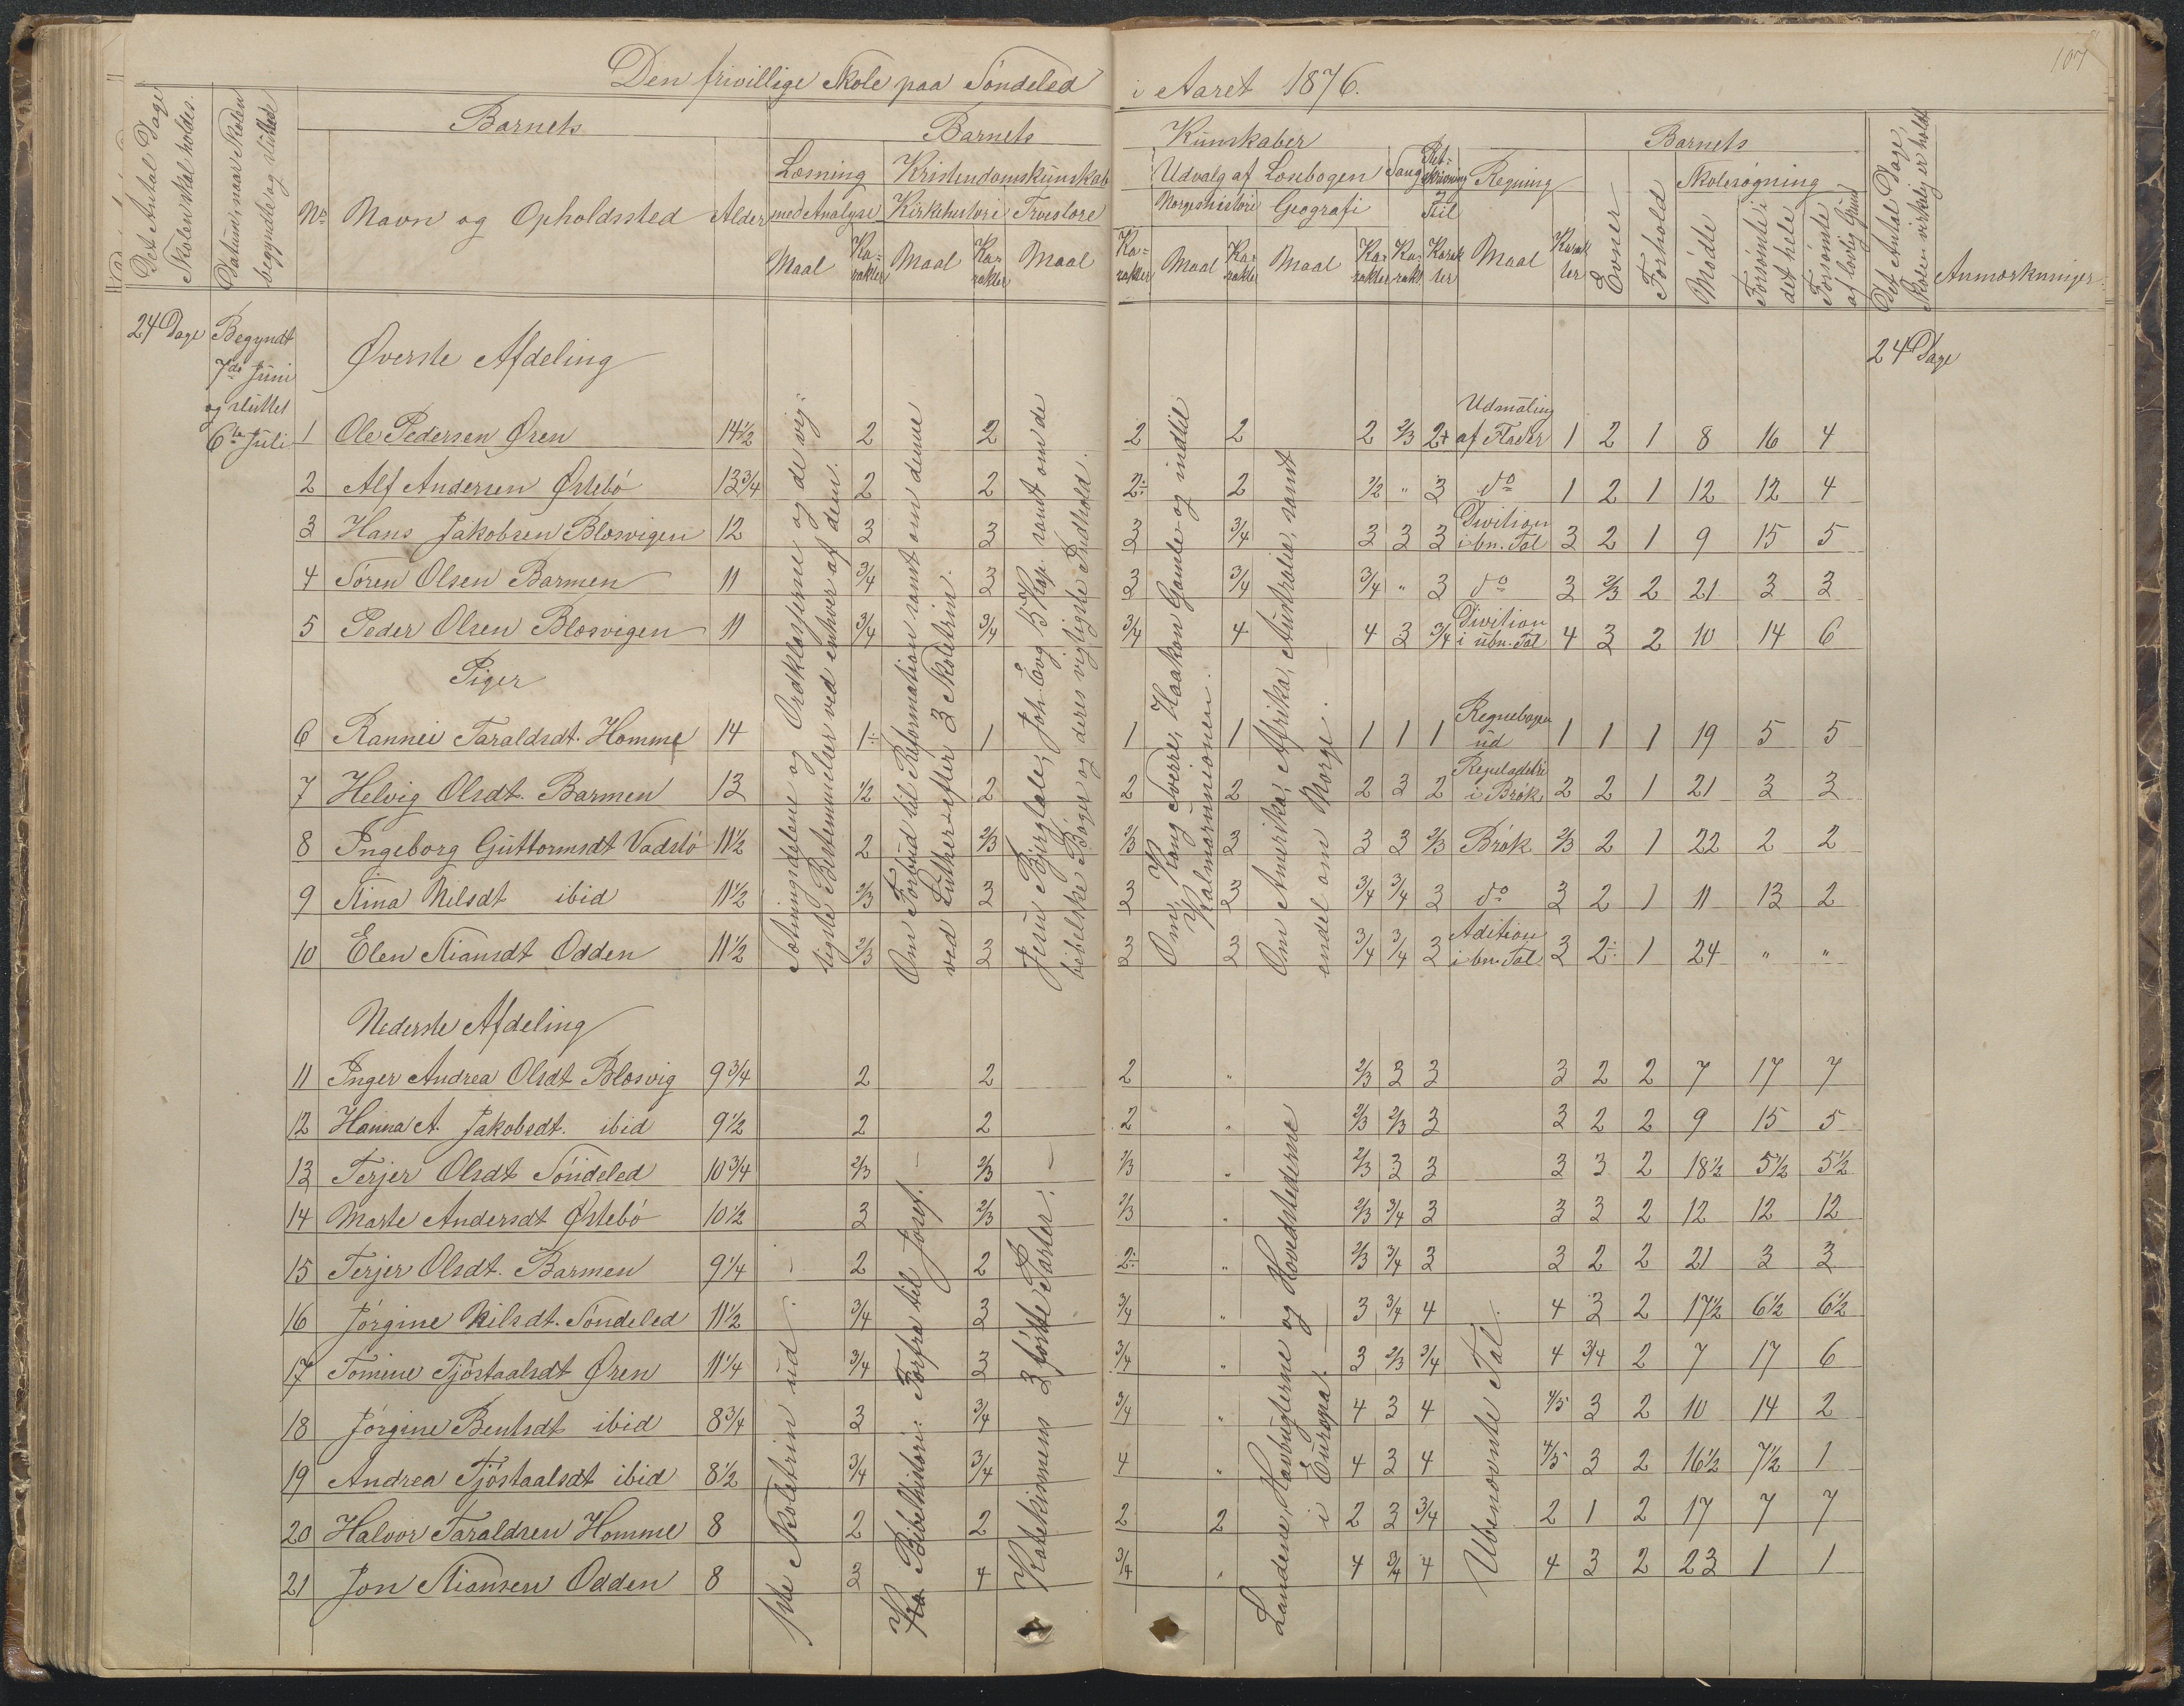 Den frivillige Skole paa Söndeled i Aaret 1876.
107
Det Antal Dage Skolen skal holdes.
Datum, naar Skolen begyndte og sluttede
Barnets
Barnets
Kundskaber
Barnets
Det Antal Dage, Skolen virkelig er holdt
Anmærkninger.
No Navn og Opholdssted Alder
Læsning med Analyse
Kristendomskundskab
Kirkehistorie Troeslære
Udvalg af Læsebogen
Norgeshistorie Geografi
Sang
Retskrivning Stil
Regning
Evner
Forhold
Skolesøgning
Mødte
Forsømte i det hele
Forsømte af lovlig Grund
Maal Karakter Maal Karakter Maal Karakter Maal Karakter Maal Karakter Karakt Karakter Maal Karakter
24 Dage
Begyndt
7de Juni
og sluttet
6te Juli
24 Dage
Øverste Afdeling
1 Ole Pedersen Øren 14½ 2 2 2 2 2 2/3 2+ Udmaaling af Flader 1 2 1 8 16 4
2 Alf Andersen Østebö 13¾ 2 2 2÷ 2 ½ " 3 do 1 2 1 12 12 4
3 Hans Jakobsen Blæsvigen 12 3 3 3 3/4 3 3 3 Divition i bn. Tal 3 2 1 9 15 5
4 Sören Olsen Barmen 11 3/4 3 3 3/4 3/4 " 3 do 3 2/3 2 21 3 3
5 Peder Olsen Blæsvigen 11 3/4 3/4 3/4 4 4 3 3/4 Divition i ubn. Tal 4 3 2 10 14 6
Piger
6 Rannei Taraldsdt. Homme 14 1÷ 1 1 1 1 1 1 Regnebogen ud 1 1 1 19 5 5
7 Helvig Olsdt. Barmen 13 ½ 2 2 2 2 3 2 Reguladetri i Brøk 2 2 1 21 3 3
8 Ingeborg Guttormsdt Vadstö 11½ 2 2/3 2/3 3 3 3 2/3 Brøk 2/3 2 1 22 2 2
9 Stina Nilsdt ibid 11½ 2/3 3 3 3 3/4 3/4 3 do 3 2 1 11 13 2
10 Elen Stiansdt Odden 11½ 2/3 3 3 3 3/4 3/4 3 Adition i bn. Tal 3 2÷ 1 24 " "
Sætningsdelene og Ordklasserne og de vigtigste Bestemmelser ved enhver af dem.
Om Forbud til Reformation samt om denne ved Luther efter 3 Skoletrin.
Jesu Bjergtale, Joh. Evg 5 Kap. samt om de bibelske Bøger og deres vigtigste Indhold.
Om Kong Sverre, Haakon Gamle og indtil Kalmarunionen.
Om Amerika, Afrika, Australia, samt endel om Norge.
Nederste Afdeling
11 Inger Andrea Olsdt Blæsvig 9¾ 2 2 2 " 2/3 3 3 3 2 2 7 17 7
12 Hanna A. Jakobsdt. ibid 9½ 2 2 2 " 2/3 2/3 3 3 2 2 9 15 5
13 Terjer Olsdt Söndeled 10¾ 2/3 2/3 2/3 " 2/3 3 3 3 3 2 18½ 5½ 5½
14 Marte Andersdt Østebö 10½ 3 2/3 2/3 " 2/3 3/4 3 3 3 2 12 12 12
15 Terjer Olsdt. Barmen 9¼ 2 2 2÷ " 2/3 3/4 3 3 2 2 21 3 3
16 Jörgine Nilsdt. Söndeled 11½ 3/4 3 3/4 " 3 3/4 4 4 3 2 17½ 6½ 6½
17 Tomine Tjöstaalsdt Øren 11¼ 3/4 3 3/4 " 3 2/3 3/4 4 3/4 2 7 17 6
18 Jörgine Bentsdt ibid 8¾ 3 3/4 3/4 " 4 3 4 4/5 3 2 10 14 2
19 Andrea Tjöstaalsdt ibid 8½ 3/4 3/4 4 " 4 3 4 4/5 3 2 16½ 7½ 1
20 Halvor Taraldsen Homme 8 2 2 2 2 2 3 3/4 2 1 2 17 7 7
21 Jon Stiansen Odden 8 3 4 3/4 " 4 3/4 4 4 3 2 23 1 1
1ste Skoletrin ud.
Bibelhistorie: Forfra til Josef.
Katekismens 3 første Parter.
Landene, Havbugterne og Hovedstederne i Europa.
Ubenævnte Tal.